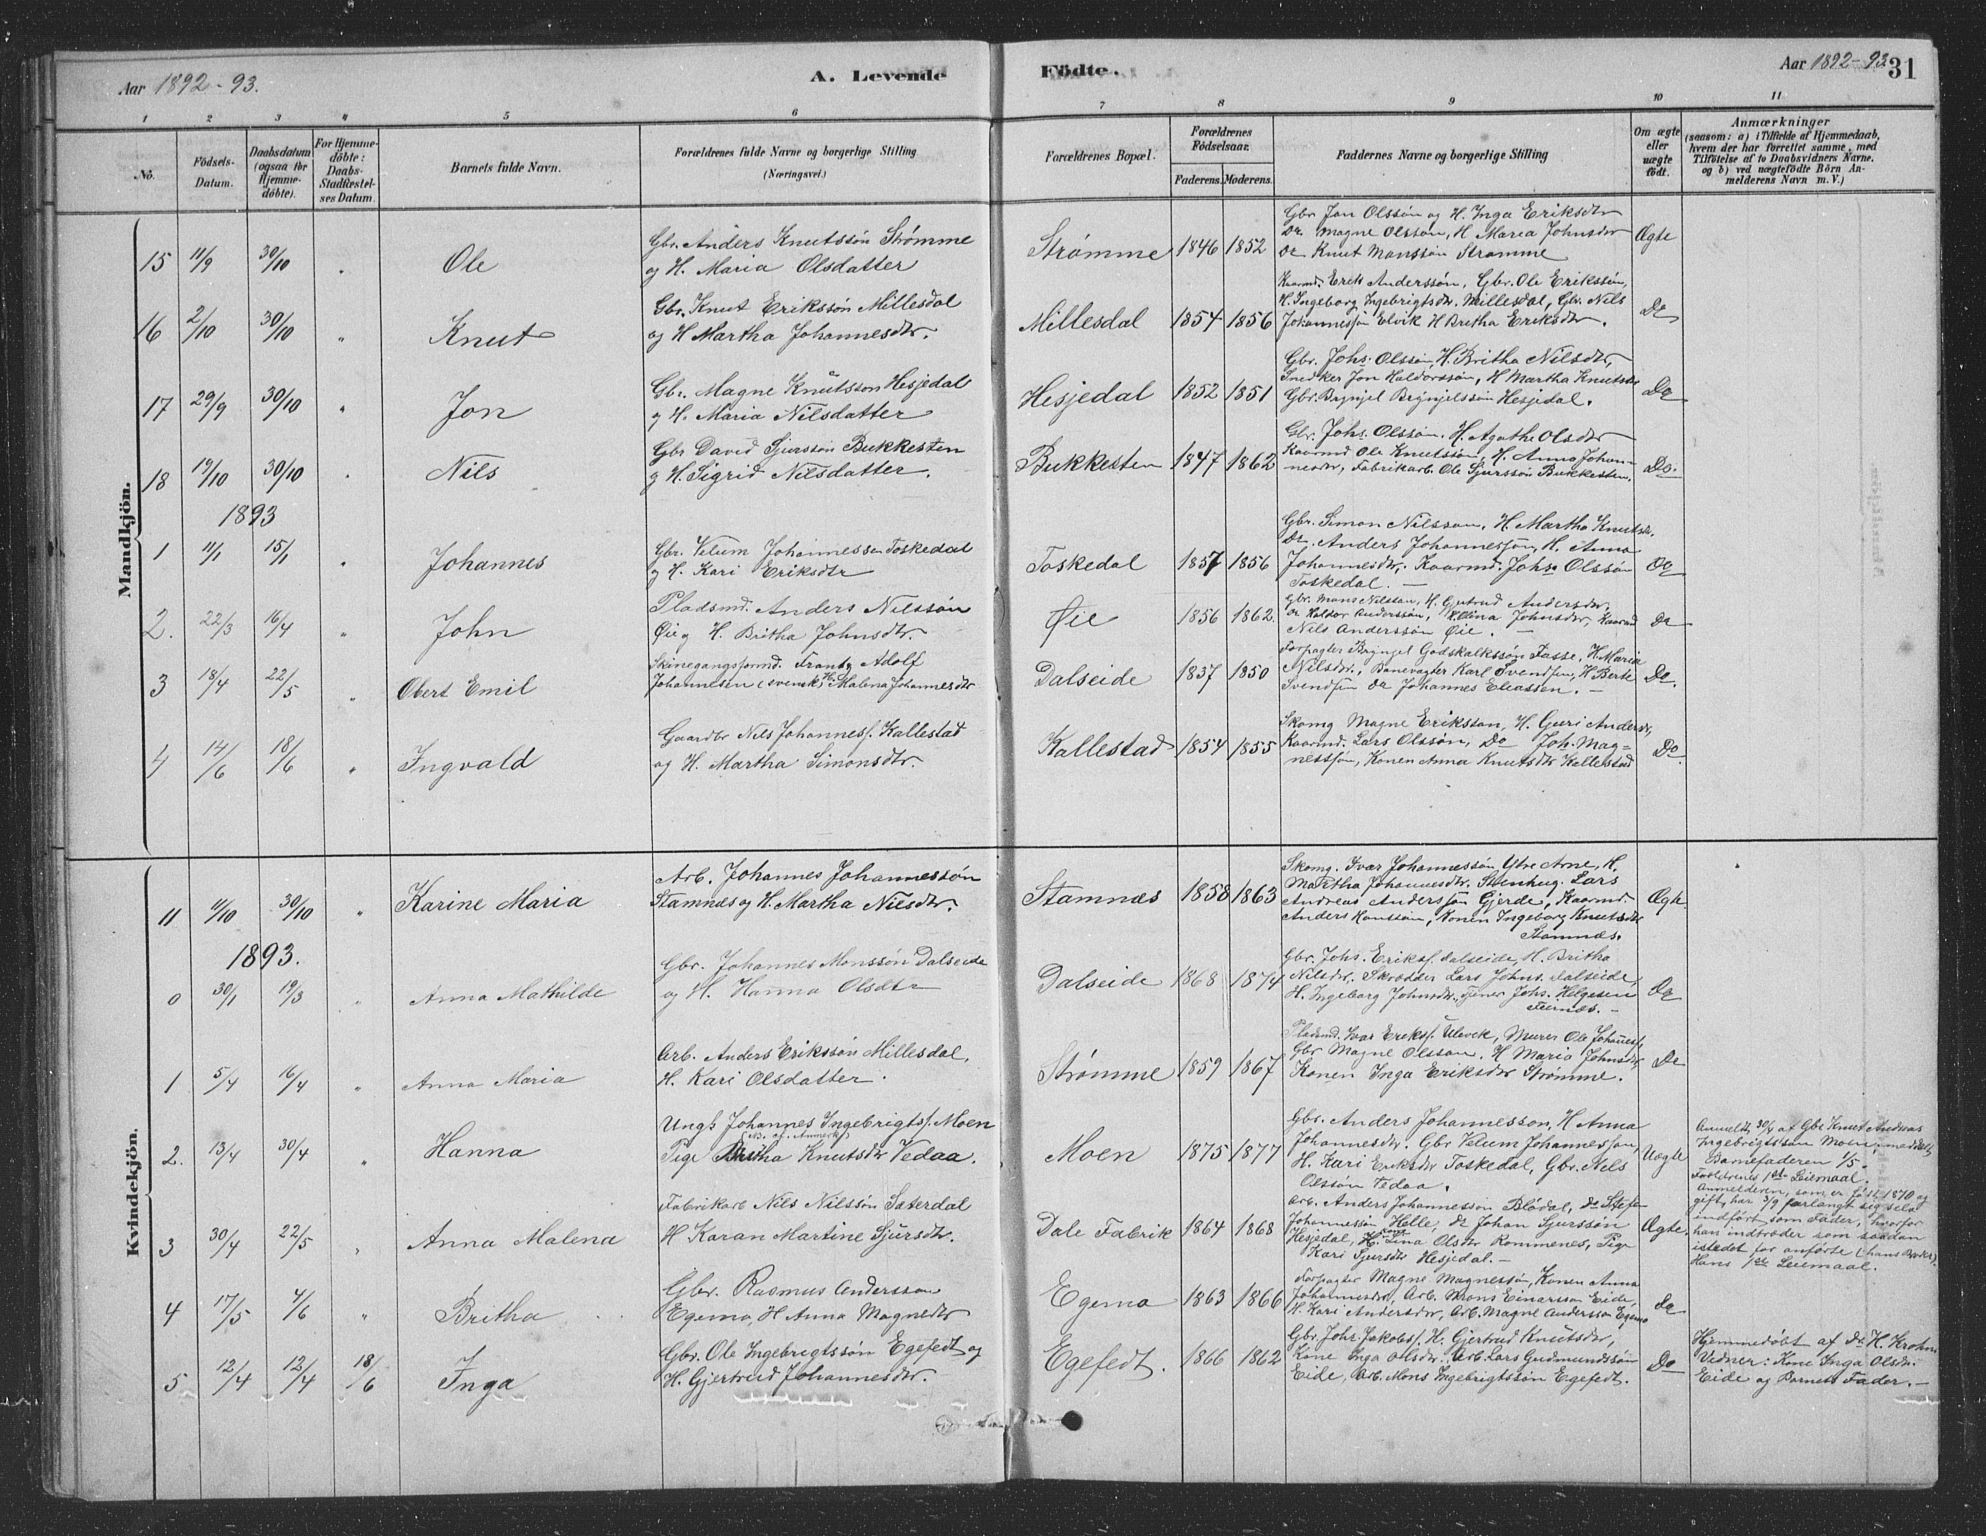 Aar 1892-93.
A. Levende
Födte.
Aar 1892-93
31
1 2 3 4 5 6 7 8 9 10 11
No.
Födsels-
Datum.
Daabsdatum
(ogsaa for
Hjemme-
döbte).
For Hjemme-
döbte:
Daabs-
Stadfæstel-
ses Datum.
Barnets fulde Navn.
Forældrenes fulde Navne og borgerlige Stilling
(Næringsvei.)
Forældrenes Bopæl.
Forældrenes
Födselsaar.
Faderens. Moderens.
Faddernes Navne og borgerlige Stilling
Om ægte
eller
uægte
födt.
Anmærkninger
(saasom: a) i Tilfælde af Hjemmedaab,
hvem der har forrettet samme, med
Tilföielse af to Daabsvidners Navne,
og b) ved uægtefödte Börn An-
melderens Navn m. V.)
Mandkjön.
15 11/9 30/10 " Ole
Gbr. Anders Knutssön Strømme
og H. Maria Olsdatter
Strømme 1846 1852
Gbr Jon Olssön og H. Inga Eriksdtr
Do Magne Olssön, H Maria Johnsdtr
Do Knut Monssön Strømme
Ægte
16 2/10 30/10 " Knut
Gbr. Knut Erikssön Millesdal
og H Martha Johannesdtr.
Millesdal 1854 1856
Kaarmd. Erik Anderssön, Gbr. Ole Erikssön,
H. Ingeborg Ingebrigtsdtr. Millesdal, Gbr. Nils
Johannessön Elvik H Britha Eriksdtr.
Do
17 29/9 30/10 " Jon
Gbr. Magne Knutsson Hesjedal
og H. Maria Nilsdatter
Hesjedal 1852 1851
Gbr. Johs. Olssön, H. Britha Nilsdtr,
Snedker Jon Haldorssön, H Martha Knutsdtr
Gbr. Brynjel Brynjelssön Hesjedal.
Do
18 19/10 30/10 " Nils
Gbr David Sjurssön Bukkesten
og H. Sigrid Nilsdatter.
Bukkesten 1847 1862
Gbr. Johs. Olssön. H. Agathe Olsdtr
Kaarmd Ole Knutssön, H. Anna Johan-
nesdtr, Fabrikarb. Ole Sjurssön Bukkesten.
Do.
1893
1 11/1 15/1 " Johannes
Gbr. Velum Johannessen Toskedal
og H. Kari Eriksdtr
Toskedal 1857 1856
Gbr. Simon Nilsson, H. Martha Knutsdr.
Do. Anders Johannessön, H. Anna
Johannesdtr. Kaarmd. Johs. Olssön
Toskedal. —
Do
2. 22/3 16/4 " John
Pladsmd. Anders Nilssön
Øie og H. Britha Johnsdtr.
Øie 1856 1862.
Gbr. Mons Nilsson, H. Gjertrud Andersdtr,
Do Haldor Anderssön, H. Olina Johnsdtr, Kaarmd
Nils Anderssön Øie. —
Do
3 18/4 22/5 " Obert Emil
Skinegangsformd. Frantz Adolf
Johannesen (svensk) H. Malena Johannesdtr
Dalseide 1837 1850
Forpagter Brynjel Godskalkssön Fosse, H. Maria
Nilsdtr., Banevogter Karl Svendsen, H Berte
Svendsen Do Johannes Eleassen. —
Do.
4 14/6 18/6 " Ingvald
Gaardbr Nils Johanness. Kallestad
og H. Martha Simonsdtr
Kallestad 1854 1855
Skomg Magne Eriksson, H. Guri Andersdr,
Kaarmd. Lars Olssön, Do Joh. Mag-
nessön, Konen Anna Knutsdtr Kallestad
Do.
Kvindekjön.
11 11/10 30/10 " Karine Maria
Arb. Johannes Johannessön
Stamnes og H. Martha Nilsdtr.
Stamnæs 1858 1863
Skomg. Ivar Johannessön Ytre Arne, H.
Martha Johannesdtr. Stenhug. Lars
Andreas Anderssön Gjerde, Kaarmd.
Anders Hanssön, Konen Ingeborg Knutsdtr
Stamnæs.
Ægte.
1893.
0 30/1 19/3 " Anna Mathilde
Gbr. Johannes Monssön Dalseide
og H. Hanna Olsdtr
Dalseide 1868 1874
Gbr. Johs. Erikss. Dalseide, H. Britha
Nilsdtr, Skrædder Lars Johns. Dalseide,
H. Ingeborg Johnsdtr., Tjener Johs. Helgesen
Do
1 5/4 16/4 " Anna Maria
Arb. Anders Erikssön Millesdal,
H. Kari Olsdatter.
Strømme 1859 1867
Pladsmd. Ivar Erikss. Ulevik, Murer Ole Johaness.
Gbr Magne Olsson. H Maria Johnsdtr,
Konen Inga Eriksdtr Strømme.
Do
2. 13/4 30/4 " Hanna
Ungk. Johannes Ingebrigts. Moen
(No. cf. Anmærk.)
Pige Britha Knutsdtr Vedaa.
Moen 1875 1877
Gbr. Anders Johannesson, H Anna
Johannesdtr. Gbr Velum Johannesson,
H. Kari Eriksdtr Toskedal, Gbr. Nils
Olssön Vedaa.
Uægte
Anmeldt 30/4 af Gbr Knut Andreas
Ingebrigtsson Moen,
Barnefaderen 1/5.
Forældrenes 1ste Leiermaal.
Anmelderen, som er født 1870 og
gift, har 3/9 forlangt sig selv
indført som Fader, hvorfor
han indtræder som saadan
istedet for anførte (hans Broder).
Hans 1ste Leiermaal.
3 30/4 22/5 " Anna Malena
Fabrikarb Nils Nilssön Saterdal
H Karan Martine Sjursdtr.
Dale Fabrik 1864 1868
Arb. Anders Johannesson Blødal, Do Stefen
Johannessön Helle, Do Johan Sjurssön
Hesjedal, H. Lina Olsdtr Rommenes, Pige
Kari Sjursdtr Hesjedal. —
Ægte.
4 17/5 4/6 " Britha
Gbr. Rasmus Andersson
Egemo, H Anna Magnedtr
Egemo 1863 1866
Forpagter Magne Magnessön, Konen Anna
Johannesdtr, Arb. Mons Einarsson Eide,
H. Kari Andersdtr, Arb. Magne Andersson Egemo
Do
5 12/4 12/4 18/6 Inga
Gbr. Ole Ingebrigtssön Egefedt og
H. Gjertrud Johannesdtr.
Egefedt. 1866 1862
Gbr. Johs. Jakobs. H. Gjertrud Knutsdtr,
Kone Inga Olsdtr. Arb. Lars Gudmundssön
Eide, Arb. Mons Ingebrigtssön Egefedt.
Do
Hjemmedøbt af Dr H. Krohn
Vidner: Kone Inga Olsdtr.
Eide og Barnets Fader. —